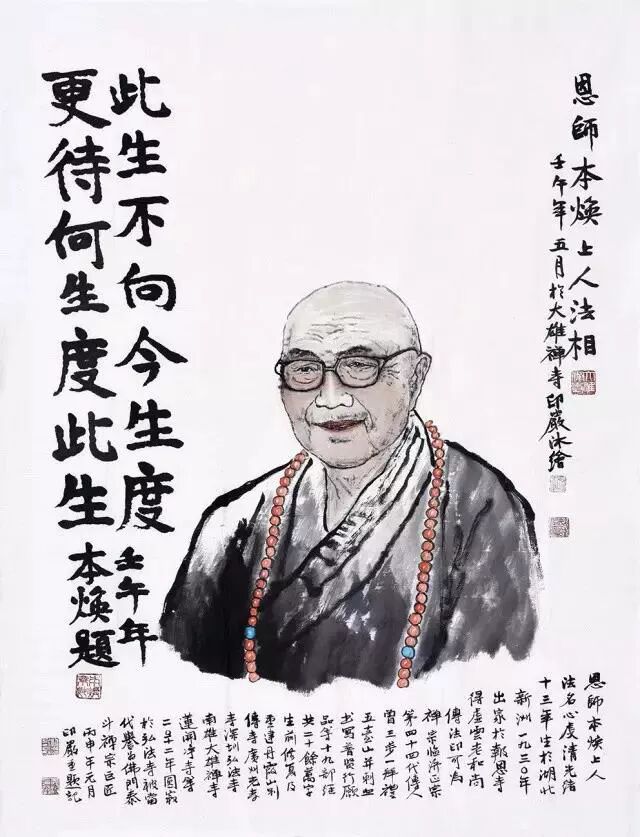 恩師本煥上人法相
壬午年五月於大雄禪寺印嚴沐繪
此生不向今生度
壬午年
更待何生度此生
本煥題
恩師本煥上人
法名心虔清光緒
十三年生於湖北
新洲一九三〇年
出家於報恩寺
得虛雲老和尚
傳法印可為
禪宗臨濟正宗
第四十四代傳人
曾三步一拜禮
五臺山并刺血
書寫普賢行願
品等十九部經
共二十餘萬字
生前修復及
重建丹霞山別
傳寺廣州光孝
寺深圳弘法寺
南雄大雄禪寺
蓮開淨寺等
二〇一二年圓寂
於弘法寺被當
代譽為佛門泰
斗禪宗巨匠
丙申年元月
印嚴重題記